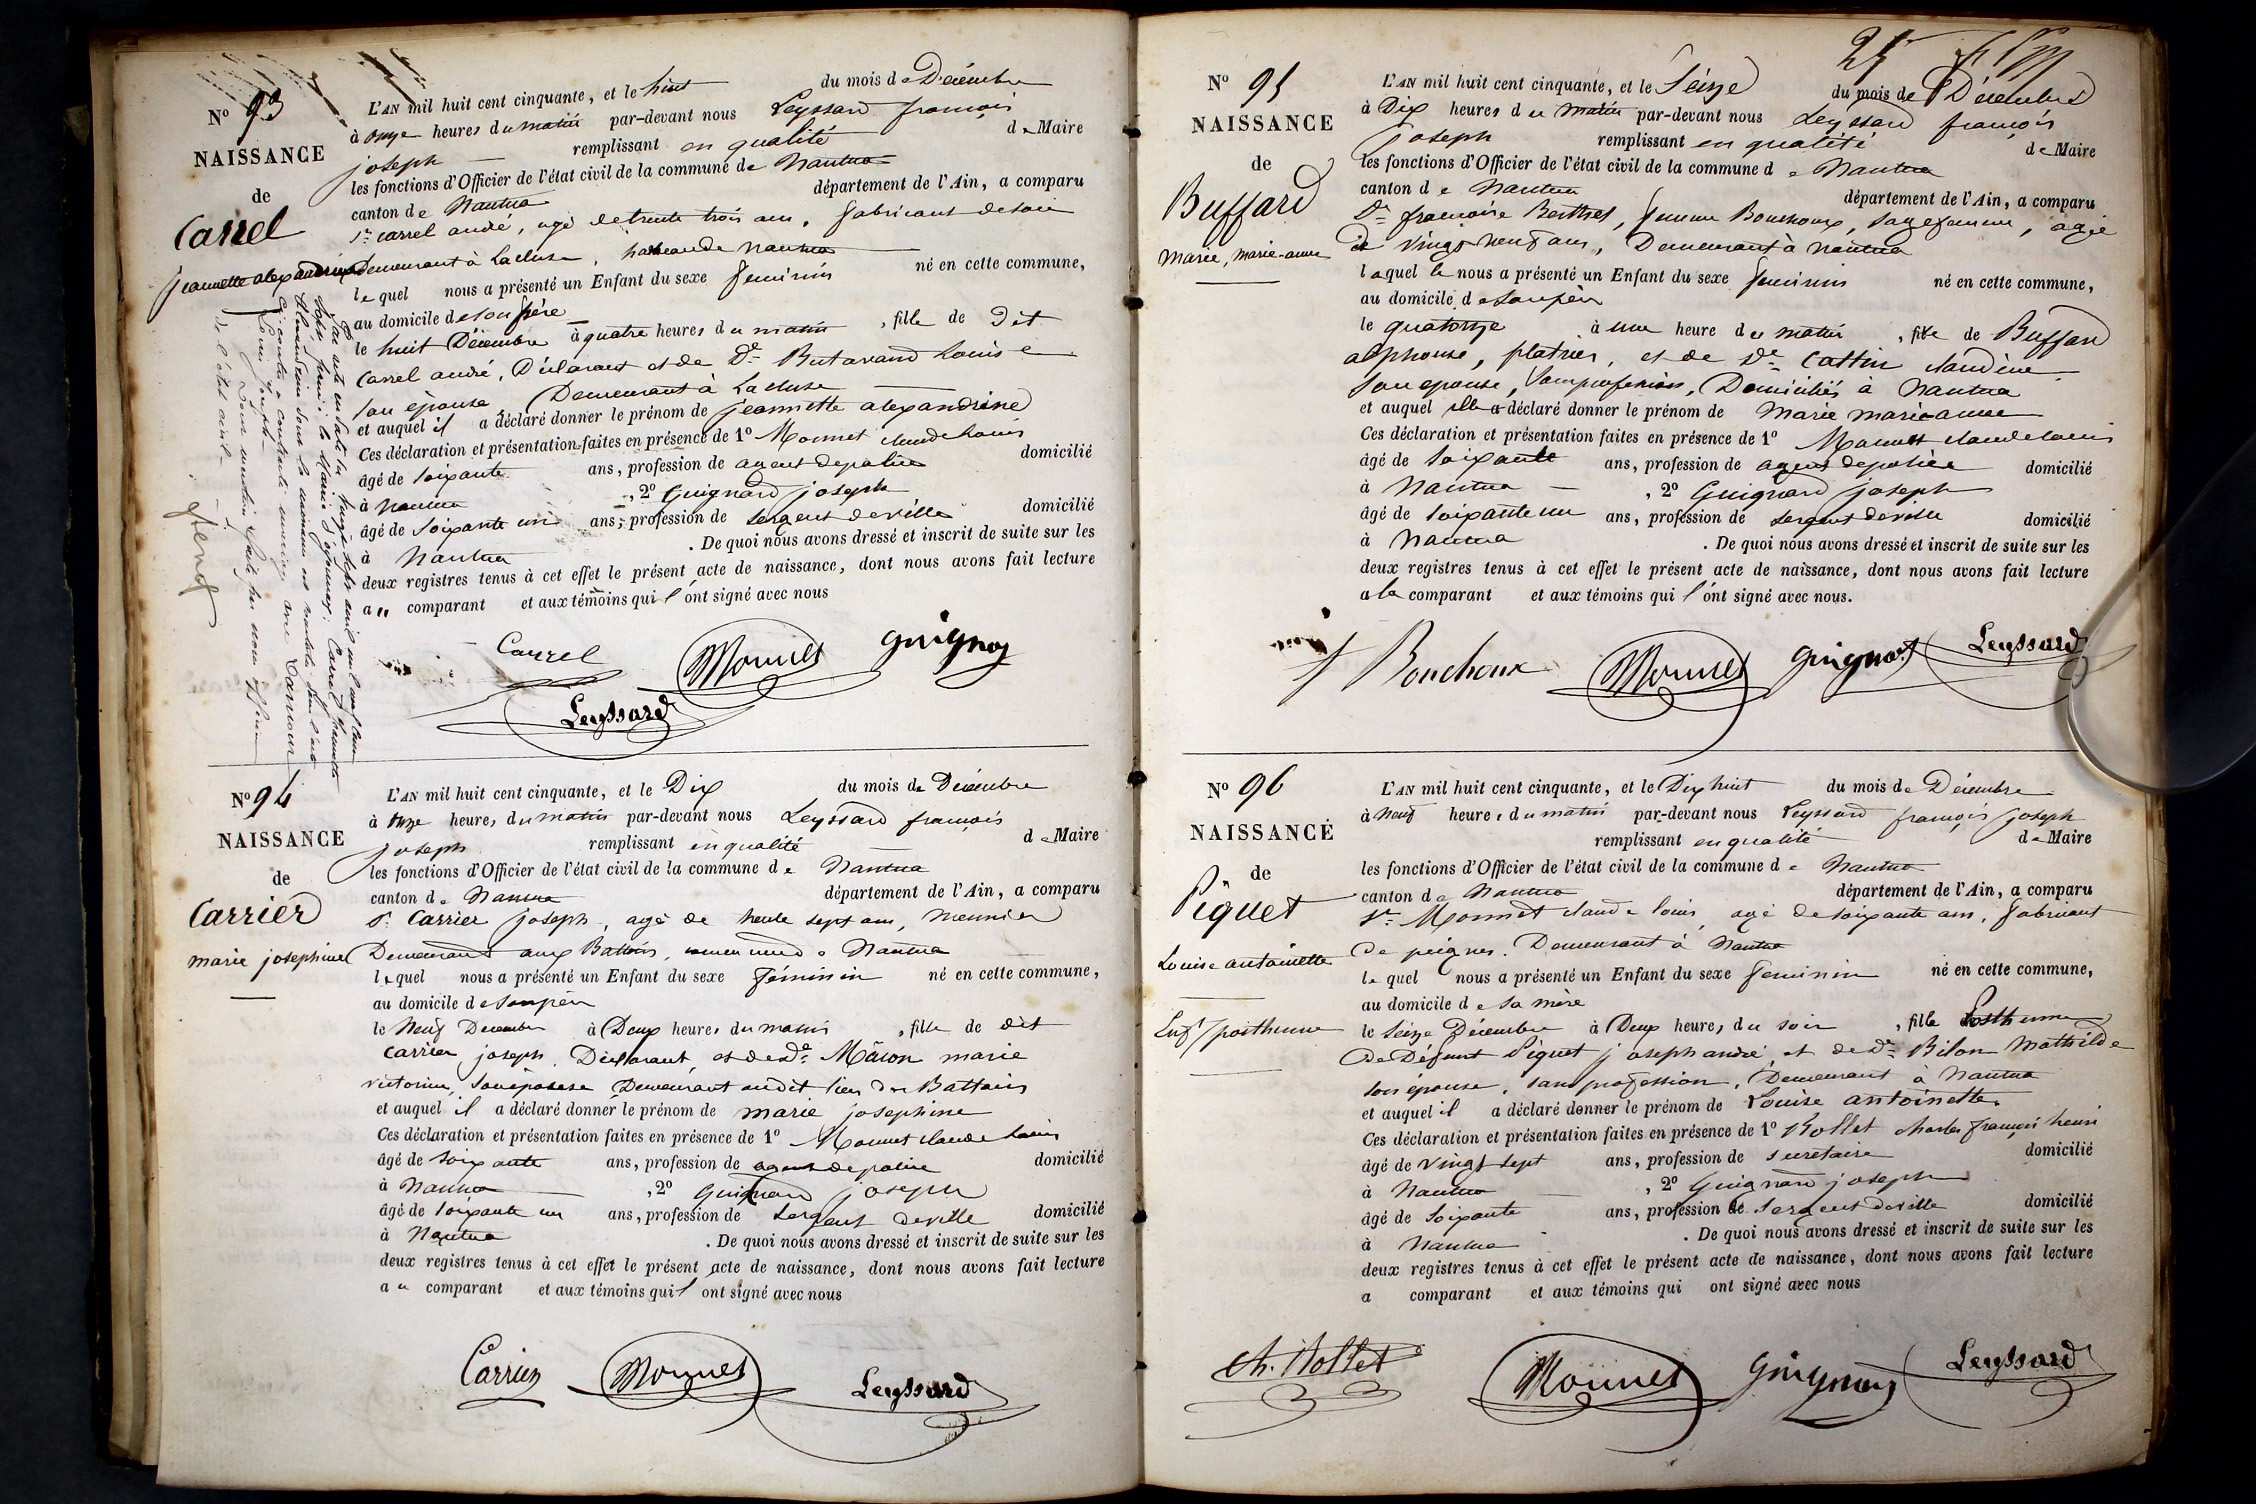 N° 93
NAISSANCE
de
Carrel
jeannette alexandrine
L'AN mil huit cent cinquante, et le huit du mois de Décembre
à onze heures du matin par-devant nous Leyssard françois
joseph remplissant en qualité de Maire
les fonctions d'Officier de l'état civil de la commune de Nantua
canton de Nantua département de l'Ain, a comparu
Sr carrel andré, agé de trente trois ans, fabricant de soie
Demeurant à Lacluse, hameau de Nantua
lequel nous a présenté un Enfant du sexe féminin né en cette commune,
au domicile de son père
le huit Décembre à quatre heures du matin, fille de dit
Carrel andré, Déclarant et de De Butavand Louise
son épouse, Demeurant à Lacluse
et auquel il a déclaré donner le prénom de jeannette alexandrine
Ces déclaration et présentation faites en présence de 1° Monnet claude Louis
âgé de soixante ans, profession de agent de police domicilié
à Nantua, 2° Guignard joseph
âgé de soixante un ans, profession de sergent de ville domicilié
à Nantua. De quoi nous avons dressé et inscrit de suite sur les
deux registres tenus à cet effet le présent acte de naissance, dont nous avons fait lecture
au comparant et aux témoins qui l'ont signé avec nous
Carrel Monnet Guignard
Leyssard
N° 94
NAISSANCE
de
Carrier
marie josephine
L'AN mil huit cent cinquante, et le Dix du mois de Décembre
à onze heures du matin par-devant nous Leyssard françois
joseph remplissant en qualité de Maire
les fonctions d'Officier de l'état civil de la commune de Nantua
canton de Nantua département de l'Ain, a comparu
Sr Carrier joseph, agé de trente sept ans, Meunier
Demeurant aux Battoirs, Nantua
lequel nous a présenté un Enfant du sexe féminin né en cette commune,
au domicile de son père
le Neuf Decembre à Deux heures du matin, fille de dit
Carrier joseph, Déclarant, et de De Mâcon marie
victorine, son épouse Demeurant audit lieu des Battoirs
et auquel il a déclaré donner le prénom de marie josephine
Ces déclaration et présentation faites en présence de 1° Monnet claude Louis
âgé de soixante ans, profession de agent de police domicilié
à Nantua, 2° Guignard joseph
âgé de soixante un ans, profession de sergent de ville domicilié
à Nantua. De quoi nous avons dressé et inscrit de suite sur les
deux registres tenus à cet effet le présent acte de naissance, dont nous avons fait lecture
au comparant et aux témoins qui l'ont signé avec nous
Carrier Monnet Leyssard
N° 95
NAISSANCE
de
Buffard
Marie, marie-anne
L'AN mil huit cent cinquante, et le Seize du mois de Décembre
à Dix heures du matin par-devant nous Leyssard françois
joseph remplissant en qualité de Maire
les fonctions d'Officier de l'état civil de la commune de Nantua
canton de Nantua département de l'Ain, a comparu
De françoise Berthet, femme Bouchoux, sagefemme, agée
de vingt neuf ans, Demeurant à Nantua
laquelle nous a présenté un Enfant du sexe féminin né en cette commune,
au domicile de son père
le quatorze à une heure du matin, fille de Buffard
alphonse, platrier, et de De Cattin claudine
son epouse, sans profession, Domiciliés à Nantua
et auquel elle a déclaré donner le prénom de Marie marie anne
Ces déclaration et présentation faites en présence de 1° Monnet claude louis
âgé de soixante ans, profession de agent de police domicilié
à Nantua, 2° Guignard joseph
âgé de soixante un ans, profession de sergent de ville domicilié
à Nantua. De quoi nous avons dressé et inscrit de suite sur les
deux registres tenus à cet effet le présent acte de naissance, dont nous avons fait lecture
a la comparant et aux témoins qui l'ont signé avec nous.
f Bouchoux Monnet Guignard Leyssard
N° 96
NAISSANCE
de
Piquet
Louise antoinette
Enft posthume
L'AN mil huit cent cinquante, et le Dix huit du mois de Décembre
à neuf heures du matin par-devant nous Leyssard françois joseph
remplissant en qualité de Maire
les fonctions d'Officier de l'état civil de la commune de Nantua
canton de Nantua département de l'Ain, a comparu
Sr Monnet claude louis, agé de soixante ans, fabricant
de peignes. Demeurant à Nantua
lequel nous a présenté un Enfant du sexe féminin né en cette commune,
au domicile de sa mère
le seize Décembre à Deux heures du soir, fille Posthume
de Défunt Piquet joseph andré, et de De Bilon Mathilde
son épouse, sans profession, Demeurant à Nantua
et auquel il a déclaré donner le prénom de Louise antoinette.
Ces déclaration et présentation faites en présence de 1° Rollet charles françois henri
âgé de vingt sept ans, profession de secretaire domicilié
à Nantua, 2° Guignard joseph
âgé de soixante ans, profession de sergent de ville domicilié
à Nantua. De quoi nous avons dressé et inscrit de suite sur les
deux registres tenus à cet effet le présent acte de naissance, dont nous avons fait lecture
a comparant et aux témoins qui ont signé avec nous
Ch. Rollet Monnet Guignard Leyssard